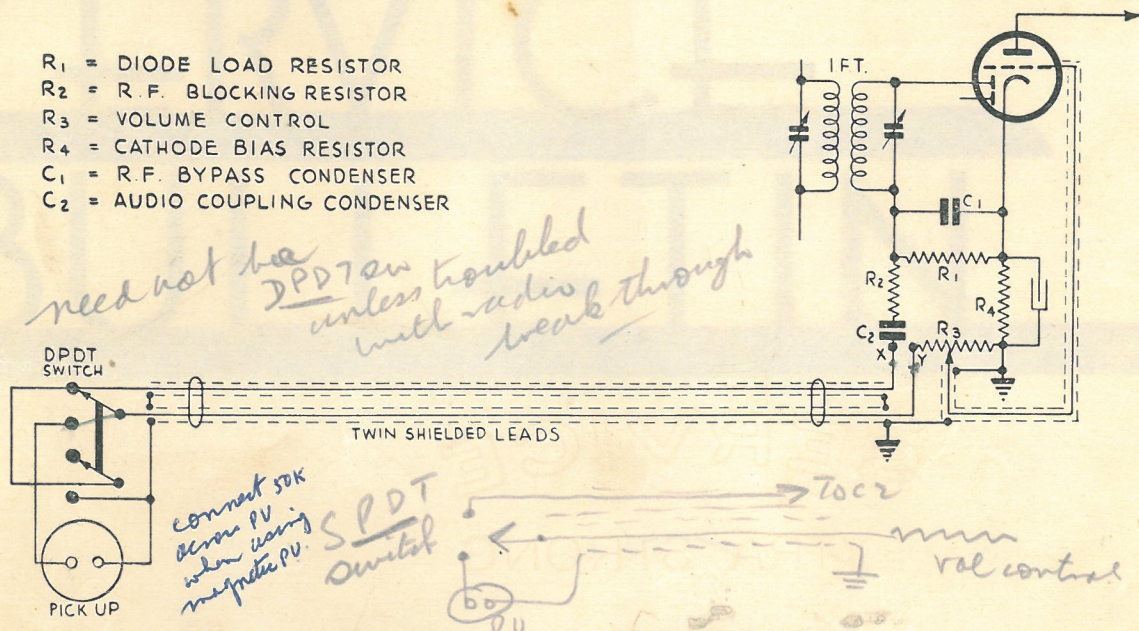 R1 = DIODE LOAD RESISTOR
R2 = R.F. BLOCKING RESISTOR
R3 = VOLUME CONTROL
R4 = CATHODE BIAS RESISTOR
C1 = R.F. BYPASS CONDENSER
C2 = AUDIO COUPLING CONDENSER
I.F.T.
C1
R1
R2
R4
C2
R3
X
Y
need not be
DPDT sw
unless troubled
with radio
break through
DPDT
SWITCH
TWIN SHIELDED LEADS
PICK UP
connect 50K
across PU
when using
magnetic PU.
SPDT
switch
To C2
vol control
PU